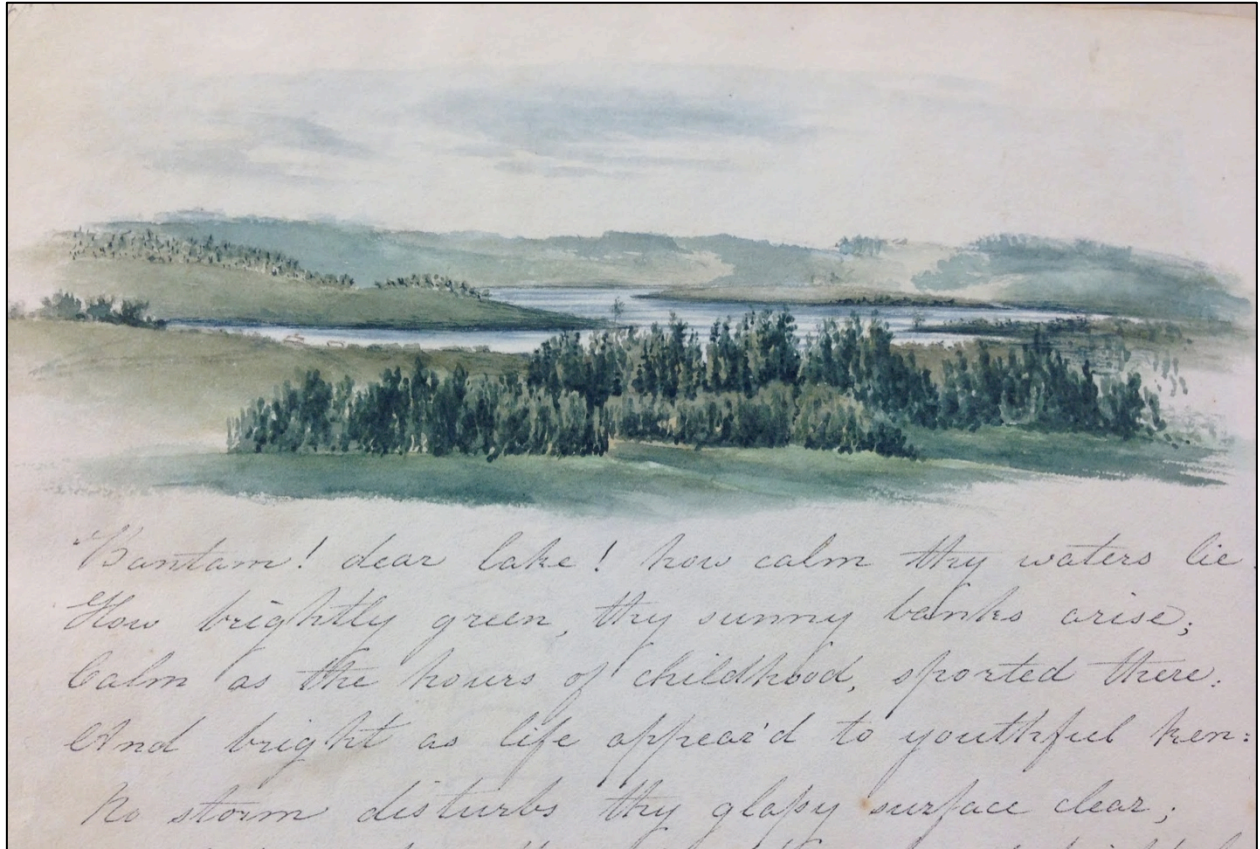 "Bantam! dear lake! how calm thy waters lie
How brightly green, thy sunny banks arise;
Calm as the hours of childhood, sported there:
And bright as life appear'd to youthful ken:
No storm disturbs thy glaſsy surface clear;